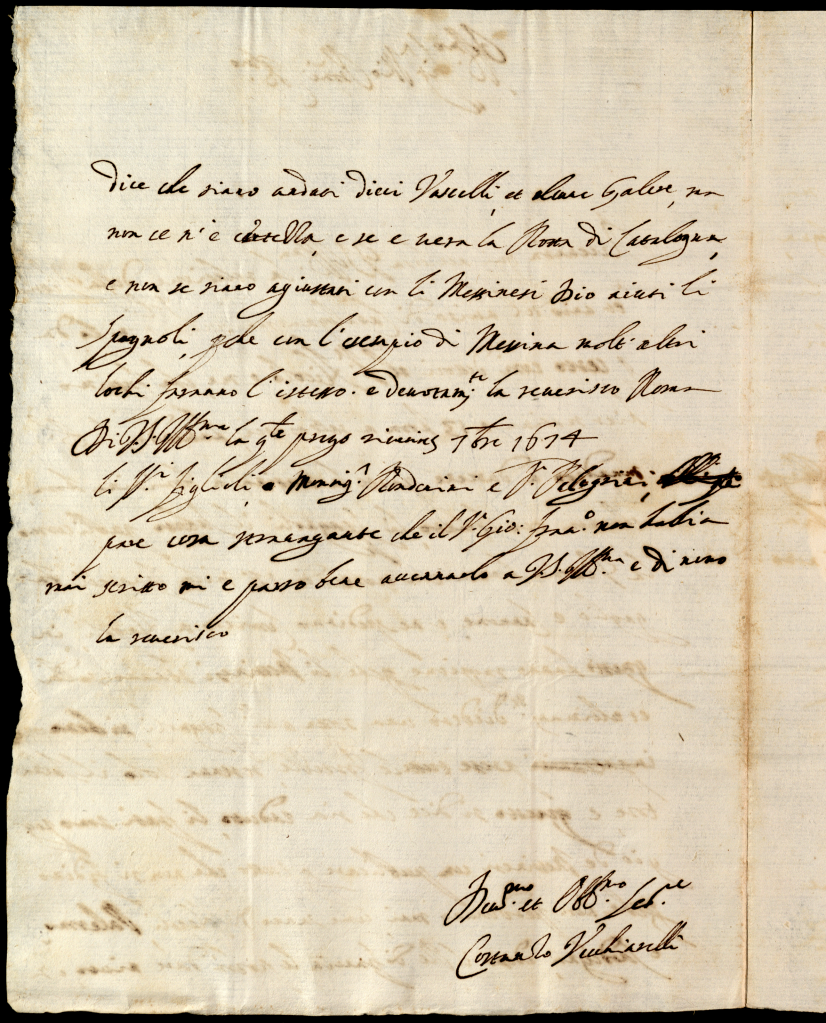 dice che siano andati dieci Vascelli, et alcune Galere, ma
non ce n'è certezza, e se e vera la Rotta di Catalogna,
e non se siano agiustati con li Messinesi Dio aiuti li
Spagnoli, perche con l'esempio di Messina molt'altri
lochi faranno l'istesso. e devotam.te la reverisco Roma
Di V.S. Ill.ma la 7bre 1674
li SS.ri figlioli e Monsig.r e
pare cosa stravagante che il S.r Gio: Fran.co non habbia
mai scritto mi e parso bene accennarlo a V.S. Ill.ma e di novo
la reverisco
Dev.mo et Obb.mo Ser.re
Vecchiarelli